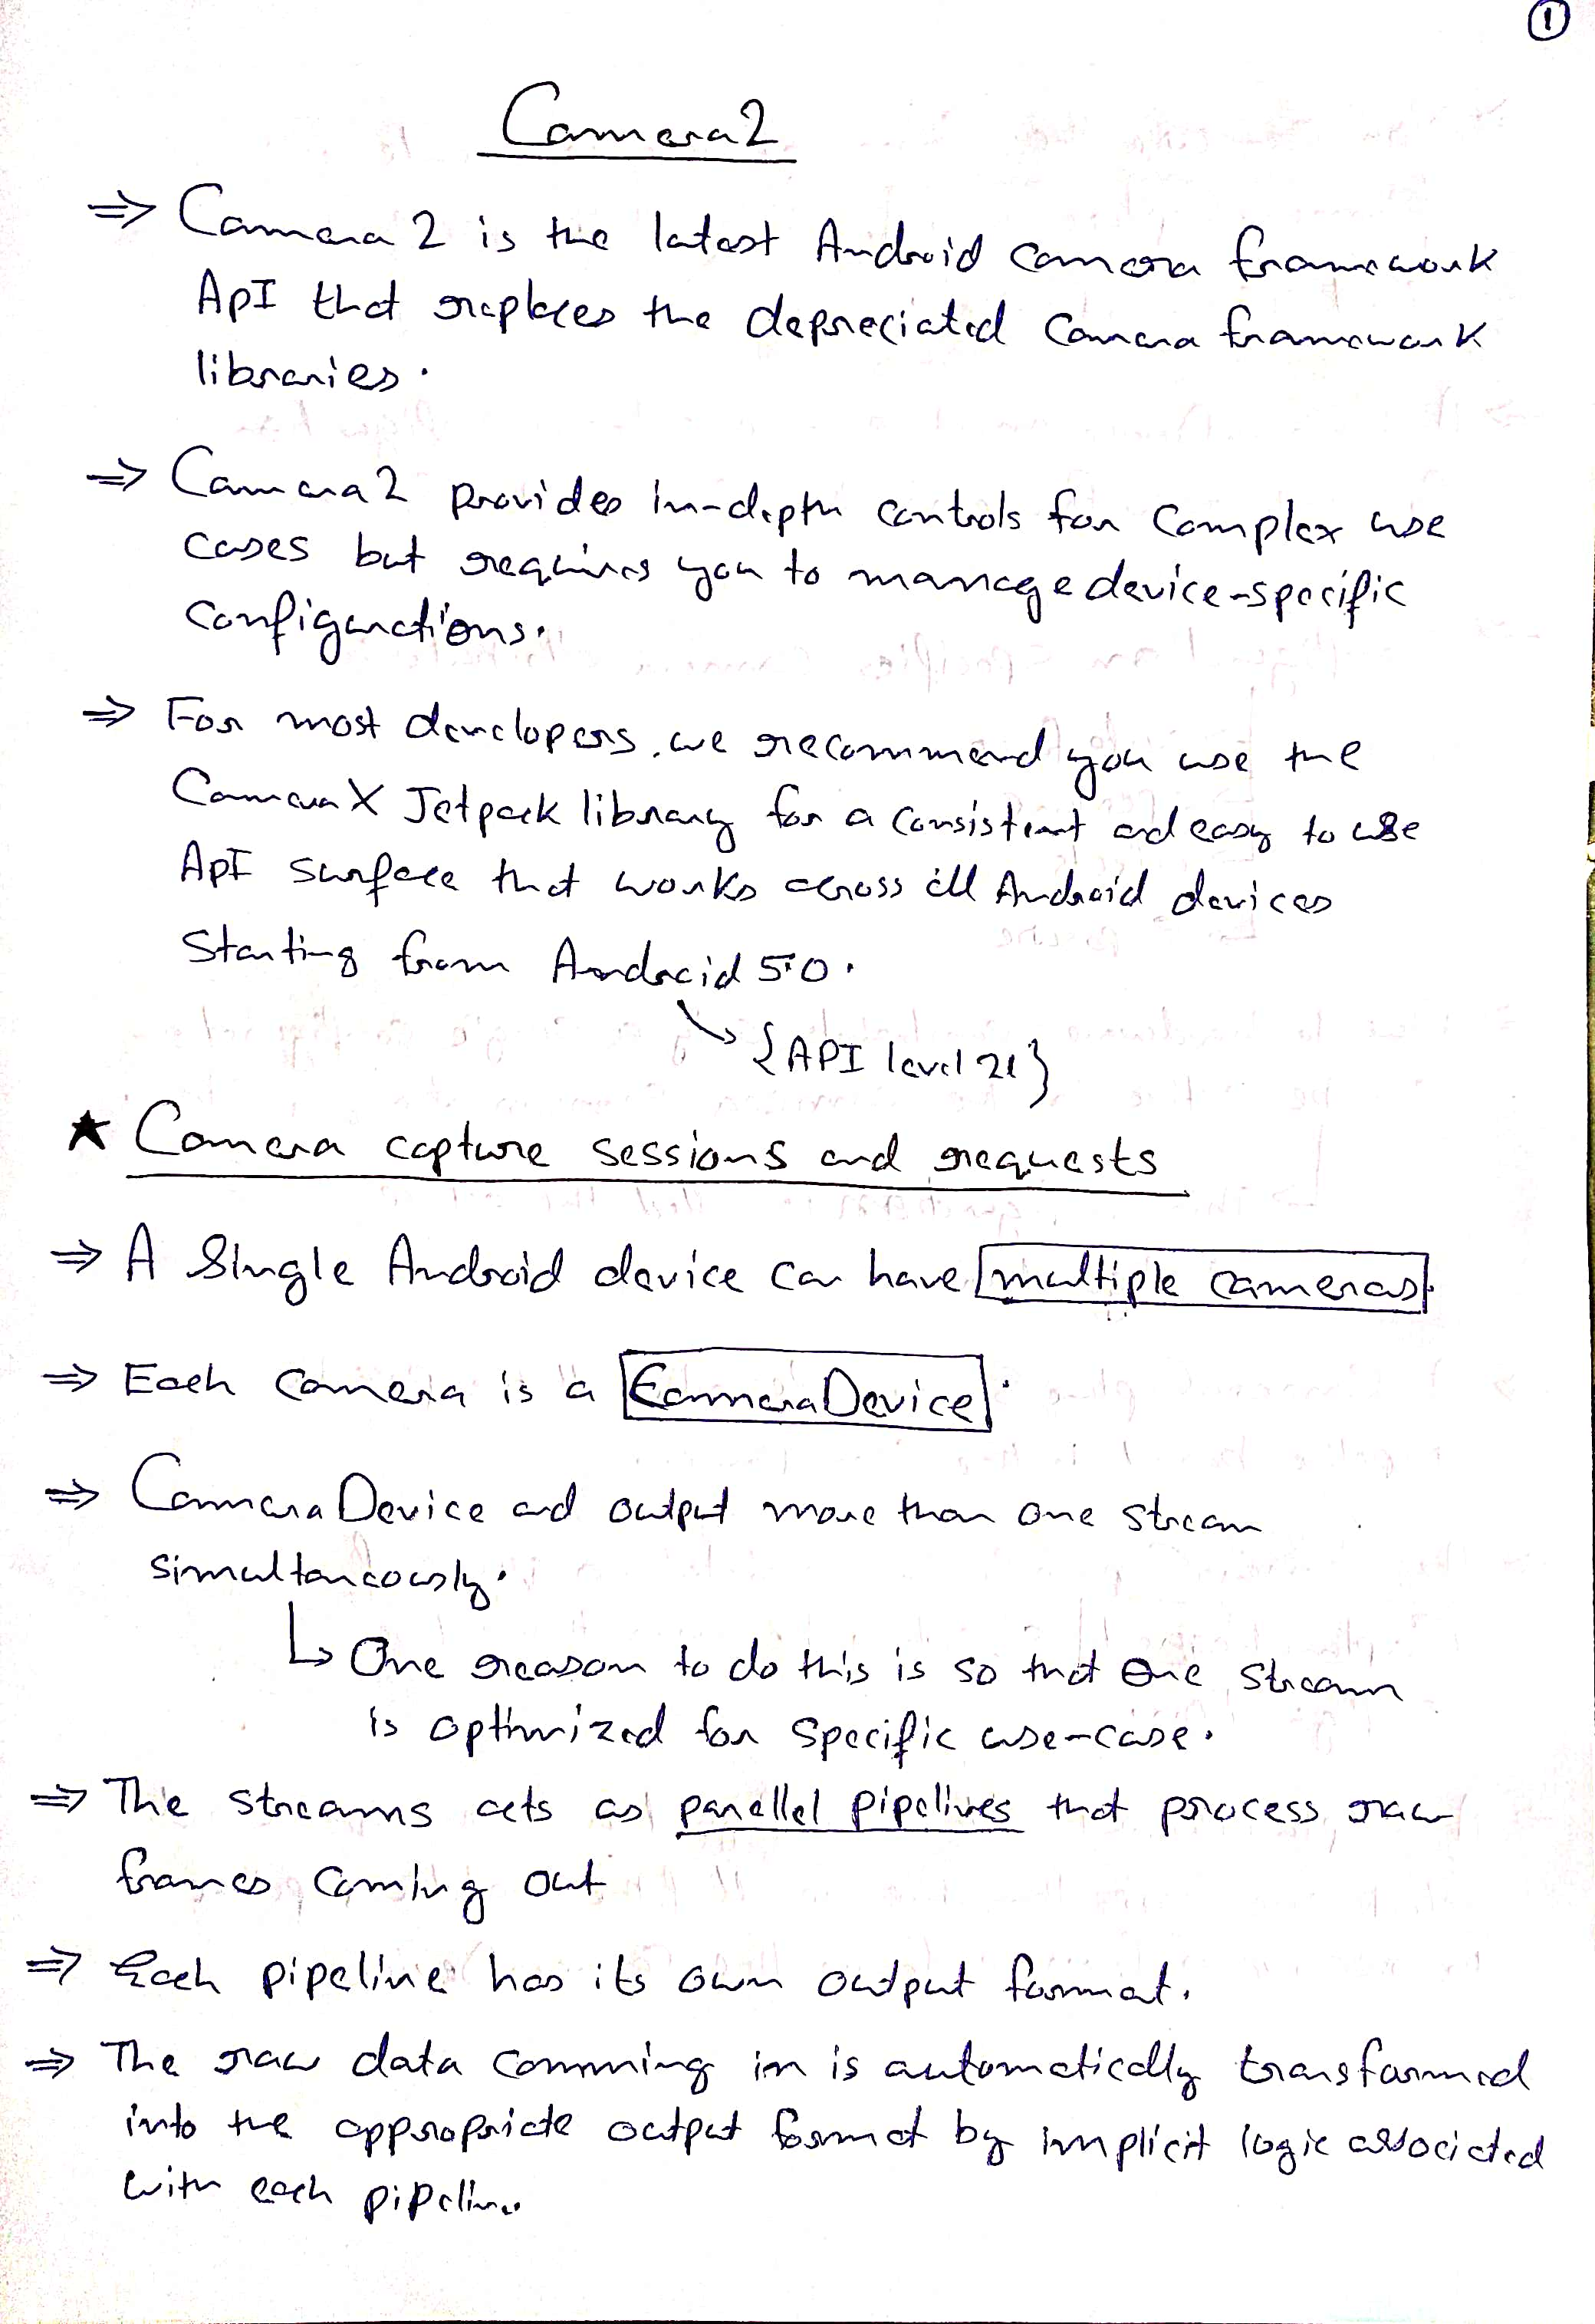 ①
Camera2
⇒ Camera 2 is the latest Android camera framework
ApI that replaces the depreciated Camera framework
libraries.
⇒ Camera2 provides in-depth controls for Complex use
cases but requires you to manage device-specific
configurations.
⇒ For most developers, we recommend you use the
CameraX Jetpack library for a consistent and easy to use
ApI surface that works across all Android devices
Starting from Android 5.0.
↘ {API level 21}
★ Camera capture sessions and requests
⇒ A Single Android device can have multiple cameras.
⇒ Each camera is a CameraDevice.
⇒ CameraDevice and output more than one stream
simultaneously.
↳ One reason to do this is so that one stream
is optimized for specific use-case.
⇒ The streams acts as parellel pipelines that process raw
frames coming out
⇒ Each pipeline has its own output format.
⇒ The raw data comming in is automatically transformed
into the appropriate output format by implicit logic associated
with each pipeline.